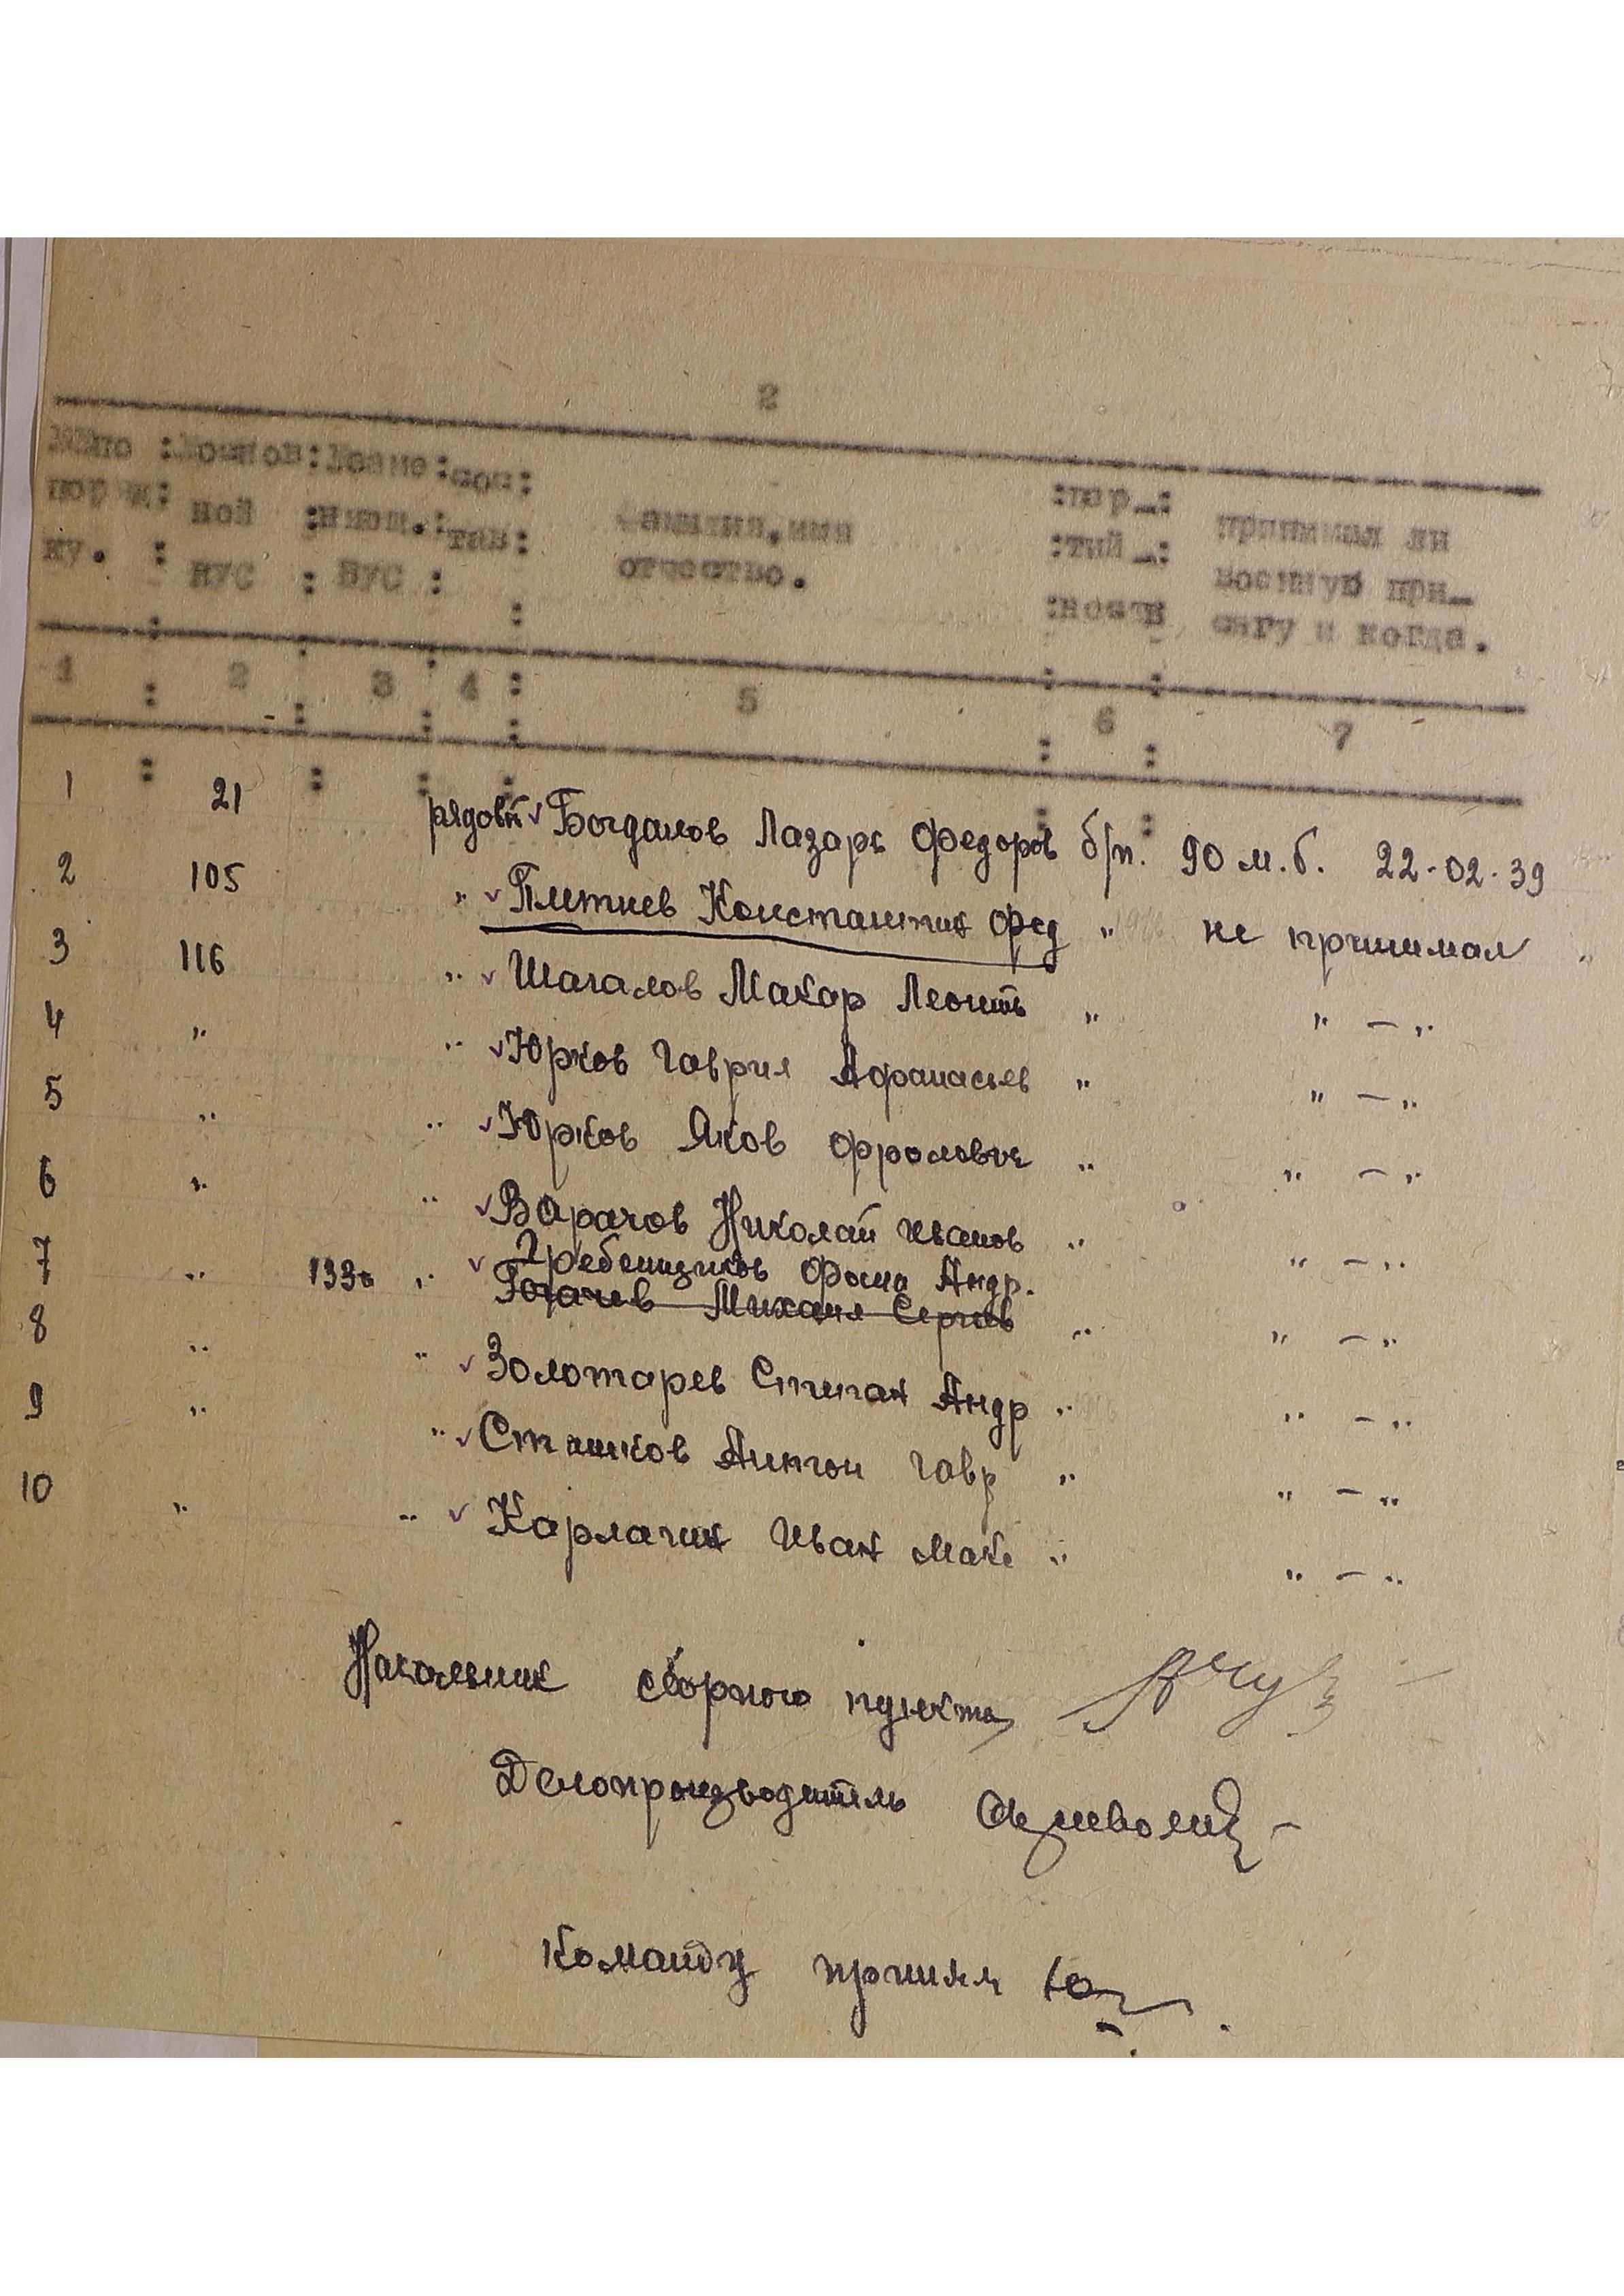 2
№№по : Основ: Возме: сос:
поряд: ной :няющ.: тав: Фамилия, имя :пар_: принимал ли
ку. : ВУС : ВУС : : отчество. :тий_: военную при_
:ность сягу и когда.
1 : 2 : 3 : 4 : 5 : 6 : 7
1 21 рядовй Богданов Лазарь Федоров б/п. 90 м.б. 22-02-39
2 105 " Плетнев Константин Фед " не принимал
3 116 " Шагалов Макар Леонть " " - "
4 " " Юрков Гаврил Афанасьев " " - "
5 " " Юрков Яков Фролович " " - "
6 " " Варачов Николай Иванов " " - "
7 " 133а " Гребенщиков Фома Андр.
Гогачев Михаил Сергеев " " - "
8 " " Золотарев Степан Андр " " - "
9 " " Сташков Антон Гавр " " - "
10 " " Карлагин Иван Макс " " - "
Начальник сборного пункта
Делопроизводитель
Команду принял